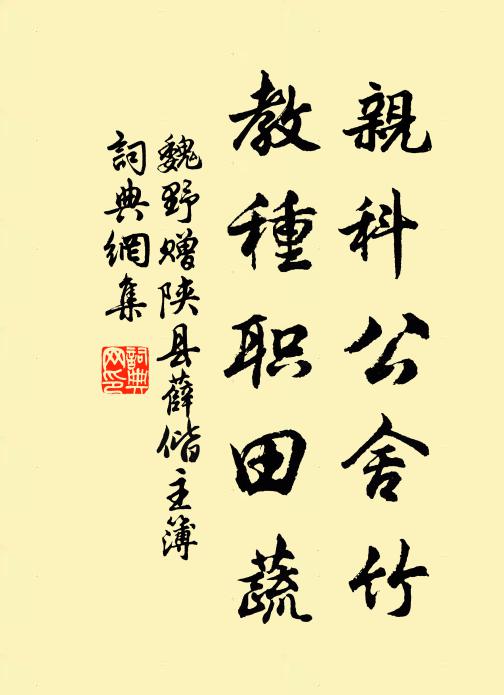 親科公舍竹
教種职田蔬
魏野赠陝县薛偕主簿
詞典網集
詞典
网印